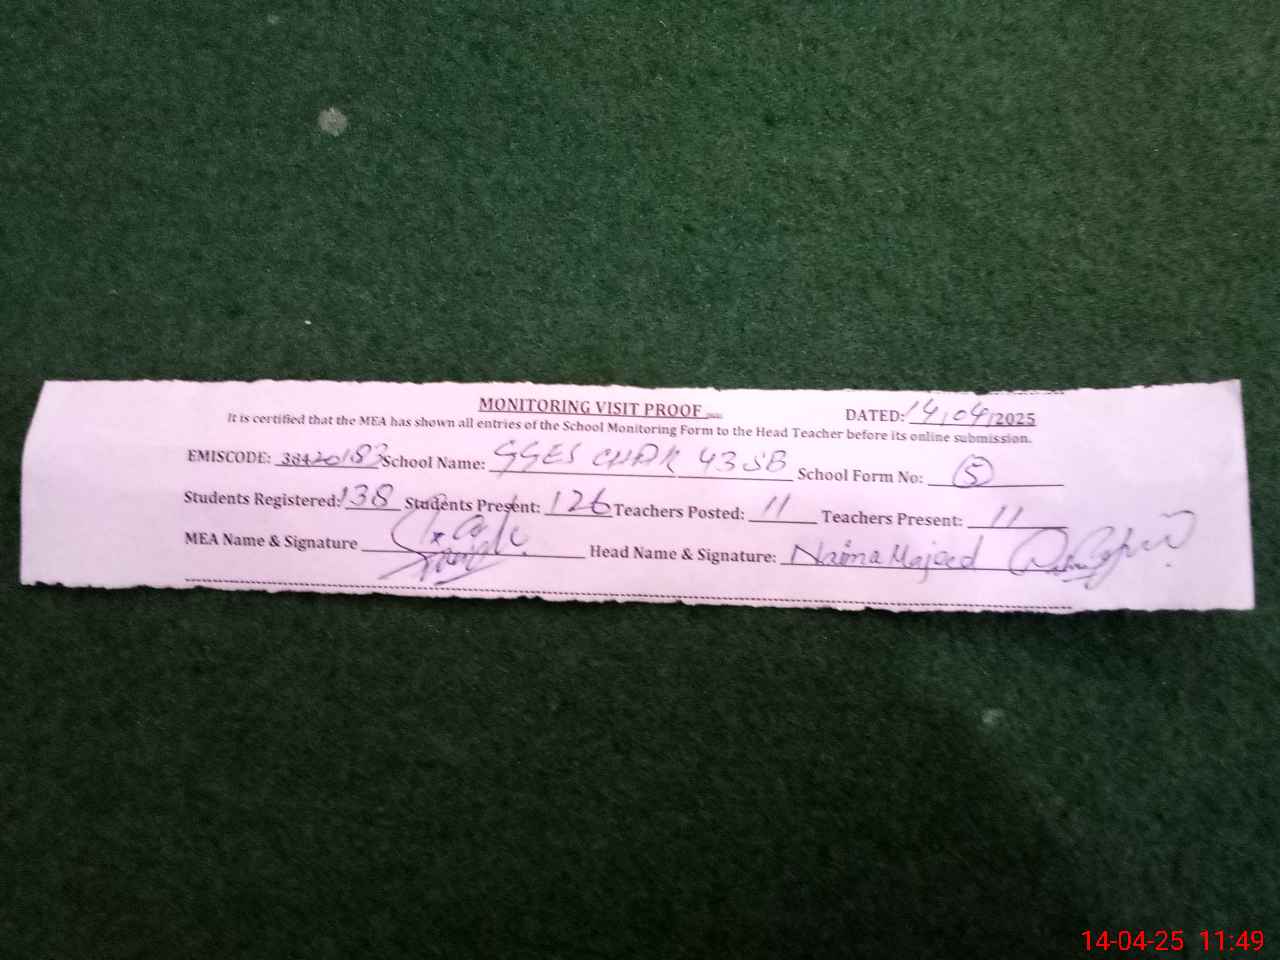 MONITORING VISIT PROOF DATED: 14/04/2025
It is certified that the MEA has shown all entries of the School Monitoring Form to the Head Teacher before its online submission.
EMISCODE: 38420183 School Name: GGES CHAK 43 SB School Form No: 5
Students Registered: 138 Students Present: 126 Teachers Posted: 11 Teachers Present: 11
MEA Name & Signature Head Name & Signature: Naima Majeed
14-04-25 11:49